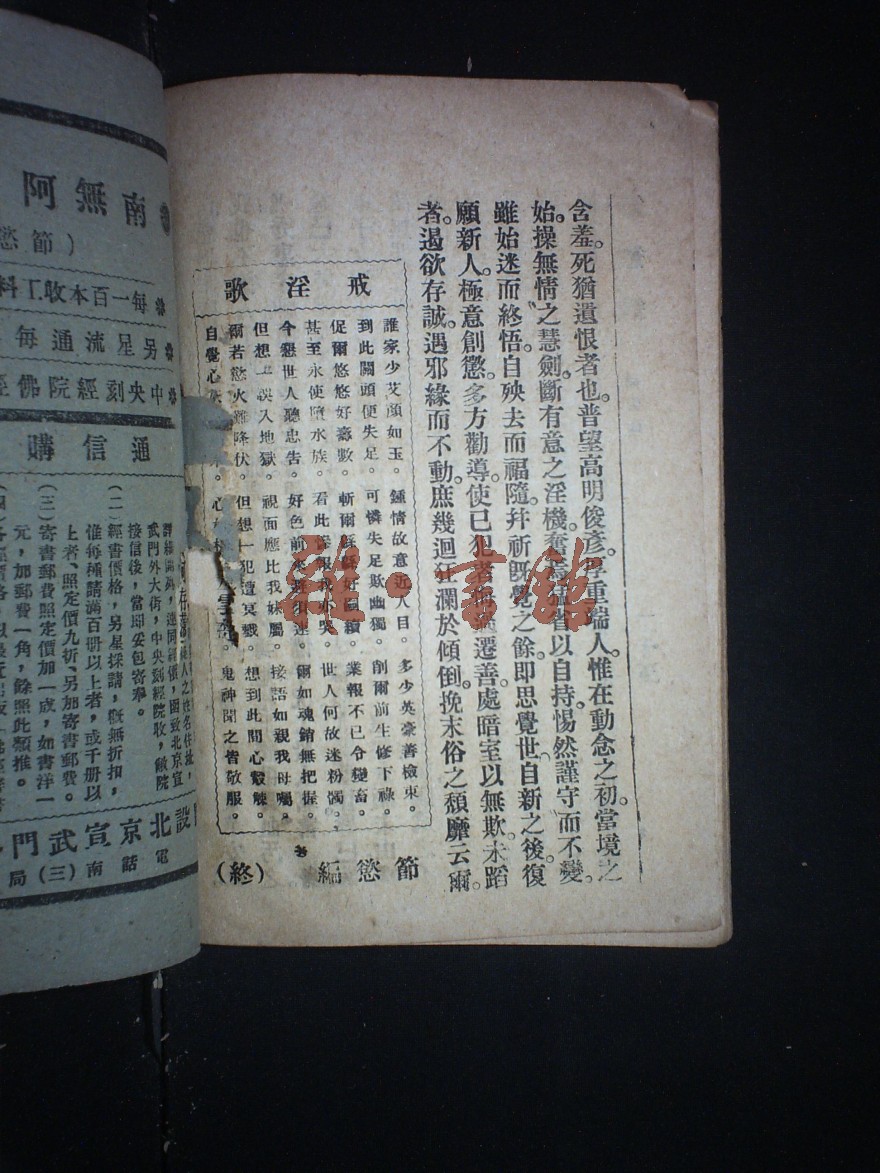 含羞。死猶遺恨者也。普望高明俊彥。淳重端人。惟在動念之初。當境之
始。操無情之慧劍。斷有意之淫機。奮然猛省以自持。惕然謹守而不變。
雖始迷而終悟。自殃去而福隨。幷祈既覺之餘。即思覺世。自新之後。復
願新人。極意創懲。多方勸導。使已犯者遷善。處暗室以無欺。未蹈
者。遏欲存誠。遇邪緣而不動。庶幾迴狂瀾於傾倒。挽末俗之頹靡云爾。
戒淫歌
誰家少艾顏如玉。鍾情故意近人目。多少英豪善檢束。
到此關頭便失足。可憐失足欺幽獨。削爾前生修下祿。
促爾悠悠好壽數。斬爾好嗣續。業報不已令變畜。
甚至永使墮水族。看此世人何故迷粉髑。
今懇世人聽忠告。好色前來避須速。爾如魂銷無把握。
但想一誤入地獄。視面應比我妹屬。接語如親我母囑。
爾若慾火難降伏。但想一犯遭冥戮。想到此間心觳觫。
自覺心 心 鬼神聞之皆敬服。
節慾編 (終)
南無阿
節慾
每一百本收工料
另星流通每
中央刻經院佛經
通信購
武門外大街，中央刻經院收，敝院
接信後，當即妥包寄奉。
(二)經書價格，另星採請，概無折扣，
惟每種請滿百册以上者，或千册以
上者、照定價九折、另加寄書郵費。
(三)寄書郵費照定價加一成，如書洋一
元，加郵費一角，餘照此類推。
設北京宣武門
電話南(三)局
雜·書館